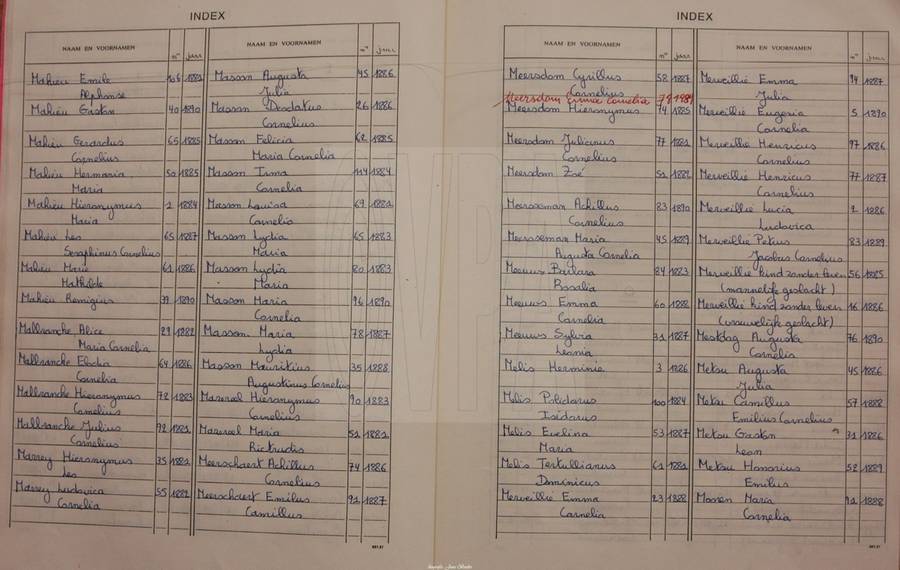 INDEX
NAAM EN VOORNAMEN n° jaar
Mahieu Emile 106 1882
Alphonse
Mahieu Gaston 40 1890
Mahieu Gerardus 65 1885
Cornelius
Mahieu Hermania 50 1885
Maria
Mahieu Hieronymus 2 1884
Maria
Mahieu Leo 65 1887
Seraphinus Cornelius
Mahieu Marie 61 1886
Mathilde
Mahieu Remigius 39 1890
Mallrancke Alice 29 1882
Maria Cornelia
Mallrancke Elodia 64 1886
Cornelia
Mallrancke Hieronymus 72 1883
Cornelius
Mallrancke Julius 92 1882
Cornelius
Marrey Hieronymus 35 1882
Leo
Marrey Ludovica 55 1882
Cornelia
NAAM EN VOORNAMEN n° jaar
Masson Augusta 45 1886
Julia
Masson Deodatus 26 1886
Cornelius
Masson Felicia 62 1885
Maria Cornelia
Masson Irma 114 1884
Cornelia
Masson Louisa 69 1882
Cornelia
Masson Lydia 65 1883
Maria
Masson Lydia 80 1883
Maria
Masson Maria 96 1890
Cornelia
Masson Maria 78 1887
Lydia
Masson Mauritius 35 1888
Augustinus Cornelius
Mazereel Hieronymus 90 1883
Cornelius
Mazereel Maria 52 1882
Rictrudis
Meerschaert Achillus 74 1886
Cornelius
Meerschaert Emilus 92 1887
Camillus
INDEX
NAAM EN VOORNAMEN n° jaar
Meersdom Cyrillus 58 1887
Cornelius
Meersdom Cornelia 78
Meersdom Hieronymus 74 1885
Meersdom Julianus 77 1882
Cornelius
Meersdom Zoé 52 1882
Meerseman Achillus 83 1890
Cornelius
Meerseman Maria 45 1889
Augusta Cornelia
Meeuws Barbara 84 1883
Rosalia
Meeuws Emma 60 1882
Cornelia
Meeuws Sylvia 31 1887
Leonia
Melis Herminie 3 1886
Melis Polidorus 100 1884
Isidorus
Melis Evelina 53 1887
Maria
Melis Tertullianus 62 1882
Dominicus
Merveillie Emma 23 1888
Cornelia
NAAM EN VOORNAMEN n° jaar
Merveillie Emma 94 1887
Julia
Merveillie Eugenia 5 1890
Cornelia
Merveillie Henricus 97 1886
Cornelius
Merveillie Henricus 77 1887
Cornelius
Merveillie Lucia 2 1886
Ludovica
Merveillie Petrus 83 1889
Jacobus Cornelius
Merveillie kind zonder leven 56 1885
(mannelijk geslacht)
Merveillie kind zonder leven 16 1886
(vrouwelijk geslacht)
Mestdag Augusta 76 1890
Cornelia
Metsu Augusta 45 1886
Julia
Metsu Camillus 57 1888
Emilius Cornelius
Metsu Gaston 31 1886
Leon
Metsu Honorius 52 1889
Emilius
Moonen Maria 92 1888
Cornelia